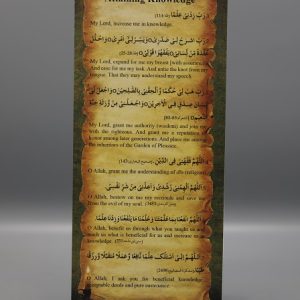 Attaining Knowledge
رَّبِّ زِدْنِي عِلْمًا
My Lord, increase me in knowledge.
رَبِّ اشْرَحْ لِي صَدْرِي وَيَسِّرْ لِي أَمْرِي وَاحْلُلْ
عُقْدَةً مِّن لِّسَانِي يَفْقَهُوا قَوْلِي
My Lord, expand for me my breast [with assurance]
And ease for me my task. And untie the knot from my
tongue. That they may understand my speech.
رَبِّ هَبْ لِي حُكْمًا وَأَلْحِقْنِي بِالصَّالِحِينَ وَاجْعَل لِّي
لِسَانَ صِدْقٍ فِي الْآخِرِينَ وَاجْعَلْنِي مِن وَرَثَةِ جَنَّةِ
النَّعِيمِ
My Lord, grant me authority (wisdom) and join me
with the righteous. And grant me a reputation of
honor among later generations. And place me among
the inheritors of the Garden of Pleasure.
اللَّهُمَّ فَقِّهْنِي فِي الدِّينِ
O Allah, grant me the understanding of
اللَّهُمَّ أَلْهِمْنِي رُشْدِي وَأَعِذْنِي مِنْ شَرِّ نَفْسِي
O Allah, bestow on me my rectitude and save me
from the evil of my soul.
اللَّهُمَّ انْفَعْنَا بِمَا عَلَّمْتَنَا وَعَلِّمْنَا مَا يَنْفَعُنَا وَزِدْنَا عِلْمًا
O Allah, benefit us through what you taught us and
teach us what is beneficial for us and increase us in
knowledge.
اللَّهُمَّ إِنِّي أَسْأَلُكَ عِلْمًا نَافِعًا وَعَمَلًا مُتَقَبَّلًا وَرِزْقًا
طَيِّبًا
O Allah, I ask you for beneficial knowledge
acceptable deeds and pure sustenance